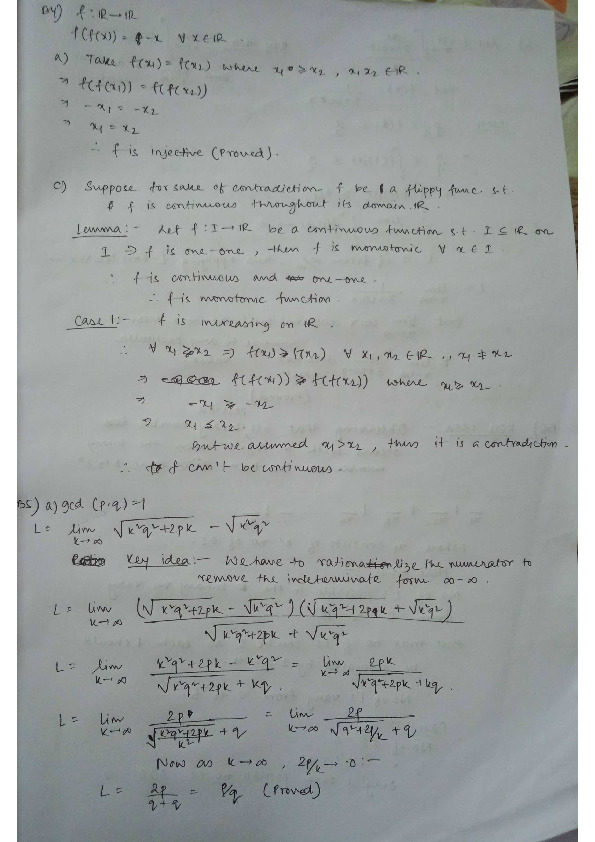 B4) f : ℝ → ℝ
f(f(x)) = -x ∀ x ∈ ℝ
a) Take f(x₁) = f(x₂) where x₁ ≥ x₂ , x₁ x₂ ∈ ℝ .
⇒ f(f(x₁)) = f(f(x₂))
⇒ -x₁ = -x₂
⇒ x₁ = x₂
∴ f is injective (Proved).
c) Suppose for sake of contradiction f be a flippy func. s.t.
f is continuous throughout its domain ℝ.
Lemma:- Let f : I → ℝ be a continuous function s.t. I ⊆ ℝ on
I ⇒ f is one-one , then f is monotonic ∀ x ∈ I.
∵ f is continuous and one-one.
∴ f is monotonic function.
Case 1:- f is increasing on ℝ.
∴ ∀ x₁ ≥ x₂ ⇒ f(x₁) ≥ f(x₂) ∀ x₁, x₂ ∈ ℝ ., x₁ ≠ x₂
⇒ f(f(x₁)) ≥ f(f(x₂)) where x₁ ≥ x₂
⇒ -x₁ ≥ -x₂
⇒ x₁ ≤ x₂.
but we assumed x₁ > x₂ , thus it is a contradiction.
∴ f can't be continuous.
B5) a) gcd (p,q) = 1
L = lim k→∞ √(k²q²+2pk) - √(k²q²)
Key idea:- We have to rationalize the numerator to
remove the indeterminate form ∞-∞.
L = lim k→∞ (√(k²q²+2pk) - √(k²q²)) (√(k²q²+2pk) + √(k²q²)) / √(k²q²+2pk) + √(k²q²)
L = lim k→∞ k²q²+2pk - k²q² / √(k²q²+2pk) + kq = lim k→∞ 2pk / √(k²q²+2pk) + kq
L = lim k→∞ 2p / √((k²q²+2pk)/k²) + q = lim k→∞ 2p / √(q²+2p/k) + q
Now as k→∞ , 2p/k → 0 :-
L = 2p / q+q = p/q (Proved)